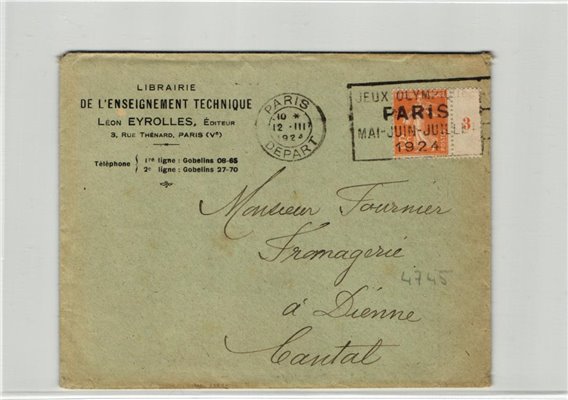 LIBRAIRIE
DE L'ENSEIGNEMENT TECHNIQUE
LÉON EYROLLES, ÉDITEUR
3, RUE THÉNARD, PARISI (Vᵉ)
Téléphone { 1ʳᵉ ligne : Gobelins 08-65
2ᵉ ligne : Gobelins 27-70
PARIS
10 *
12 - III
1924
DÉPART
JEUX OLYMPIQUES
PARIS
MAI-JUIN-JUILLET
1924
3
Monsieur Fournier
Fromagerie
4745
à Diénne
Cantal